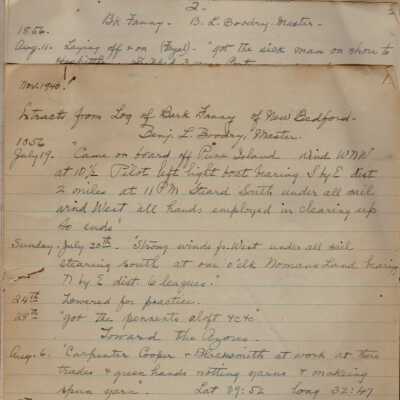 2.
Bk Fanny. - B. L. Boodry. Master.
1856.
Aug. 11. Laying off & on (Fayal) - "got the sick man on shore to
Nov. 1940.
Extracts from Log of Bark Fanny of New Bedford -
Benj. L. Boodry, Master.
1856
July 19. "Came on board off Pune Island wind WNW
at 10½ Pilot left light boat bearing S by E dist
2 miles at 11 P.M. Steard South under all sail
wind West all hands employed in clearing up
So ends"
Sunday. July 20th "Strong winds fr. West under all sail
stearing south at one o'clk Nomans Land bearing
N by E dist. 6 leagues."
24th Lowered for practice.
28th "got the pennents aloft &c &c"
Toward the Azores.
Aug. 6. "Carpenter Cooper & Blacksmith at work at their
trades & green hands notting yarns & making
spun yarn. Lat 39:52 Long 32:47